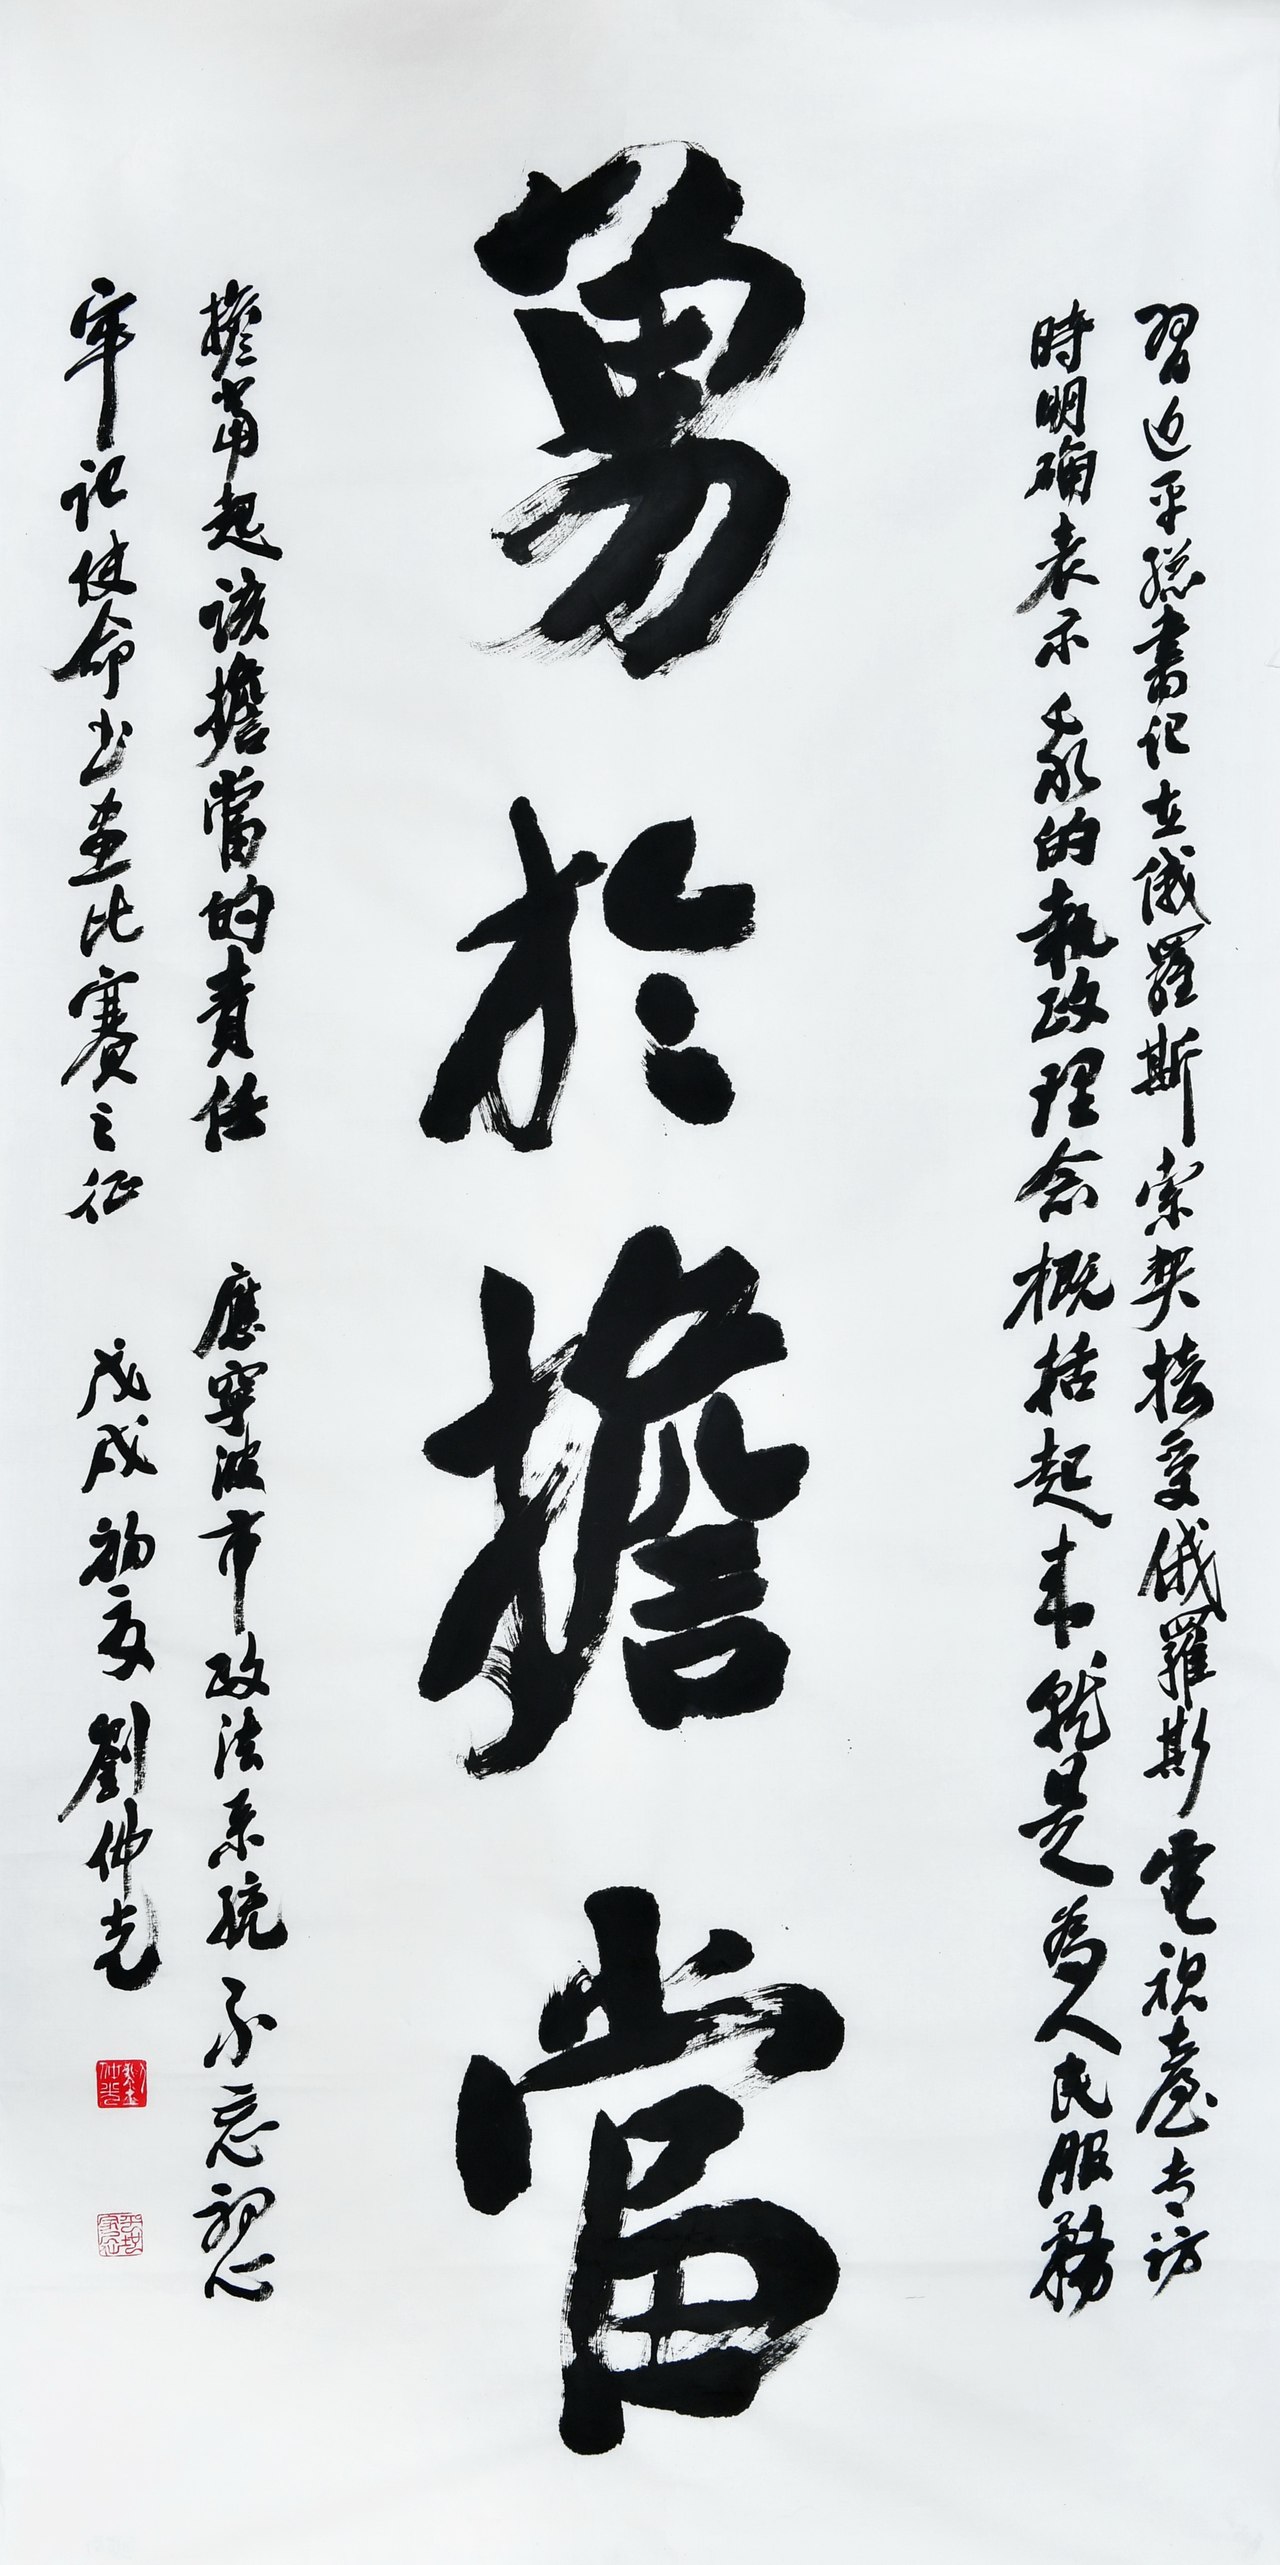 習近平總書記在俄羅斯索契接受俄羅斯電視臺专訪
時明确表示我的執政理念概括起来就是為人民服務
勇於擔當
擔當起該擔當的責任　應寧波市政法系統不忘初心
牢记使命书画比賽之征　戊戌初夏劉佛光